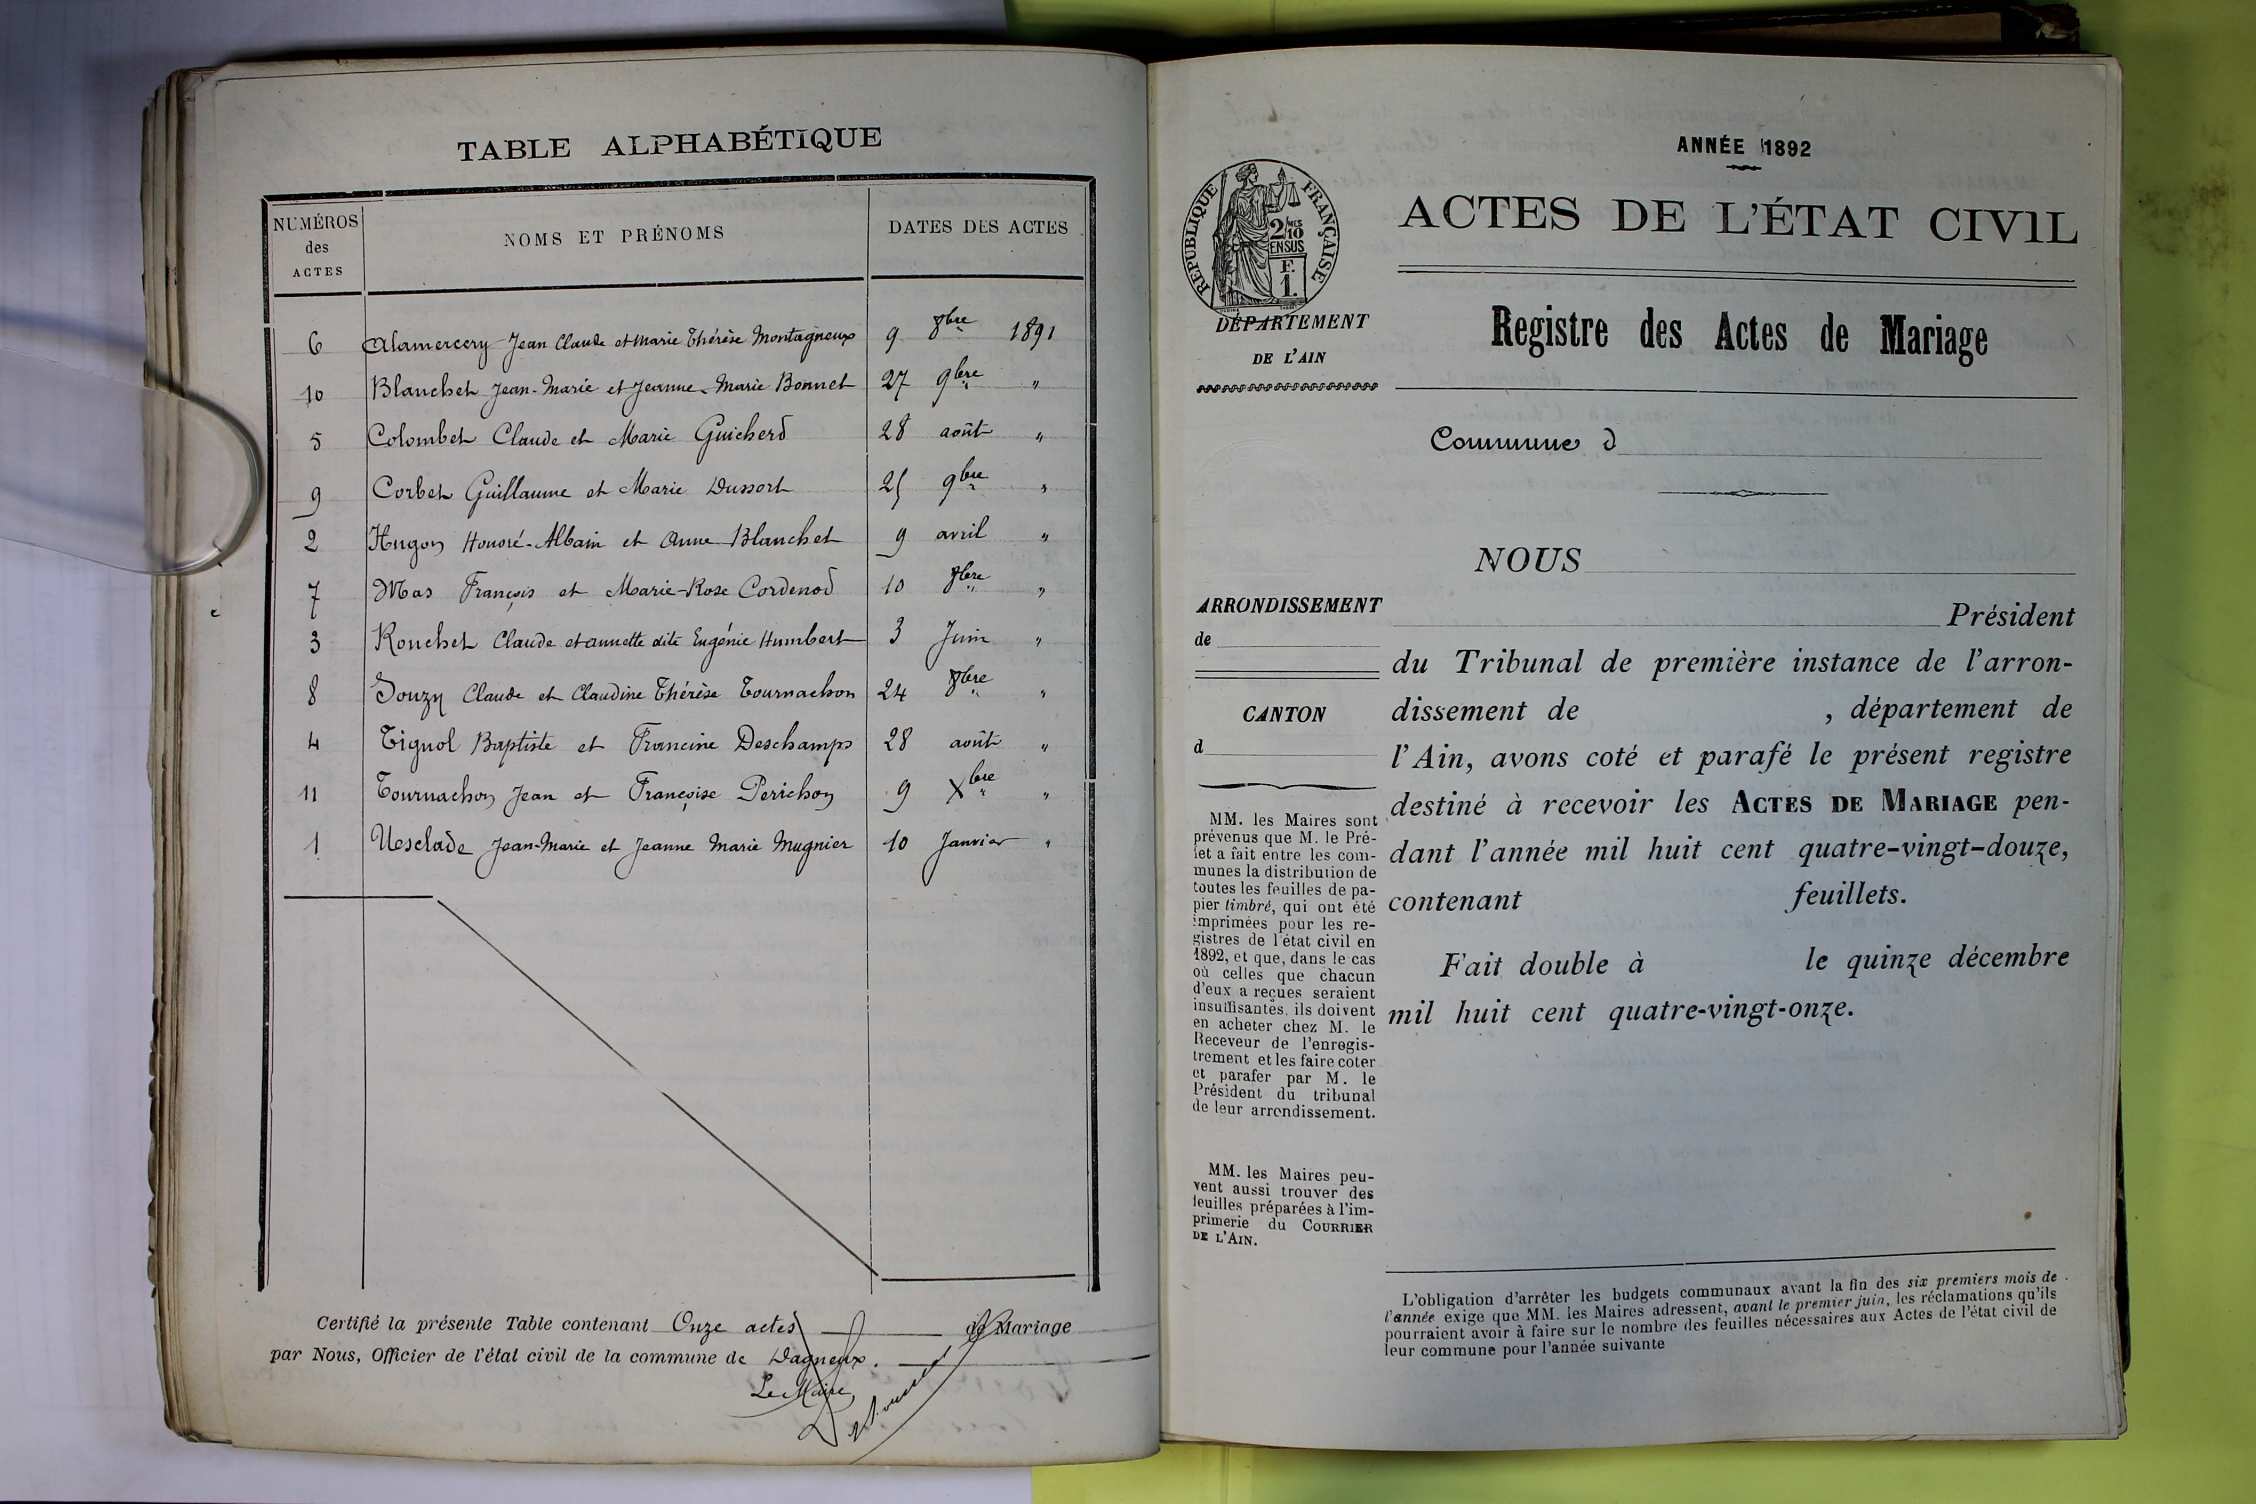 TABLE ALPHABÉTIQUE
NUMÉROS des ACTES
NOMS ET PRÉNOMS
DATES DES ACTES
6 Alamercery Jean Claude et Marie Thérèse Montagneux 9 8bre 1891
10 Blanchet Jean-Marie et Jeanne-Marie Bonnet 27 9bre "
5 Colombet Claude et Marie Guicherd 28 août "
9 Corbet Guillaume et Marie Dussort 25 9bre "
2 Hugon Honoré-Albain et Anne Blanchet 9 avril "
7 Mas François et Marie-Rose Cordenod 10 8bre "
3 Rouchet Claude et Annette dite Eugénie Humbert 3 Juin "
8 Souzy Claude et Claudine Thérèse Tournachon 24 8bre "
4 Tignol Baptiste et Francine Deschamps 28 août "
11 Tournachon Jean et Françoise Perichon 9 Xbre "
1 Uesclade Jean-Marie et Jeanne Marie Mugnier 10 Janvier "
Certifié la présente Table contenant Onze actes de Mariage
par Nous, Officier de l'état civil de la commune de Dagneux.
Le Maire
ANNÉE 1892
RÉPUBLIQUE FRANÇAISE
2/10 EN SUS
F. 1.
ACTES DE L'ÉTAT CIVIL
DÉPARTEMENT
DE L'AIN
Registre des Actes de Mariage
Commune d
NOUS
ARRONDISSEMENT
de
Président
du Tribunal de première instance de l'arron-
dissement de , département de
l'Ain, avons coté et parafé le présent registre
destiné à recevoir les ACTES DE MARIAGE pen-
dant l'année mil huit cent quatre-vingt-douze,
contenant feuillets.
Fait double à le quinze décembre
mil huit cent quatre-vingt-onze.
CANTON
d
MM. les Maires sont
prévenus que M. le Pré-
fet a fait entre les com-
munes la distribution de
toutes les feuilles de pa-
pier timbré, qui ont été
imprimées pour les re-
gistres de l'état civil en
1892, et que, dans le cas
où celles que chacun
d'eux a reçues seraient
insuffisantes, ils doivent
en acheter chez M. le
Receveur de l'enregis-
trement et les faire coter
et parafer par M. le
Président du tribunal
de leur arrondissement.
MM. les Maires peu-
vent aussi trouver des
feuilles préparées à l'im-
primerie du COURRIER
DE L'AIN.
L'obligation d'arrêter les budgets communaux avant la fin des six premiers mois de
l'année exige que MM. les Maires adressent, avant le premier juin, les réclamations qu'ils
pourraient avoir à faire sur le nombre des feuilles nécessaires aux Actes de l'état civil de
leur commune pour l'année suivante